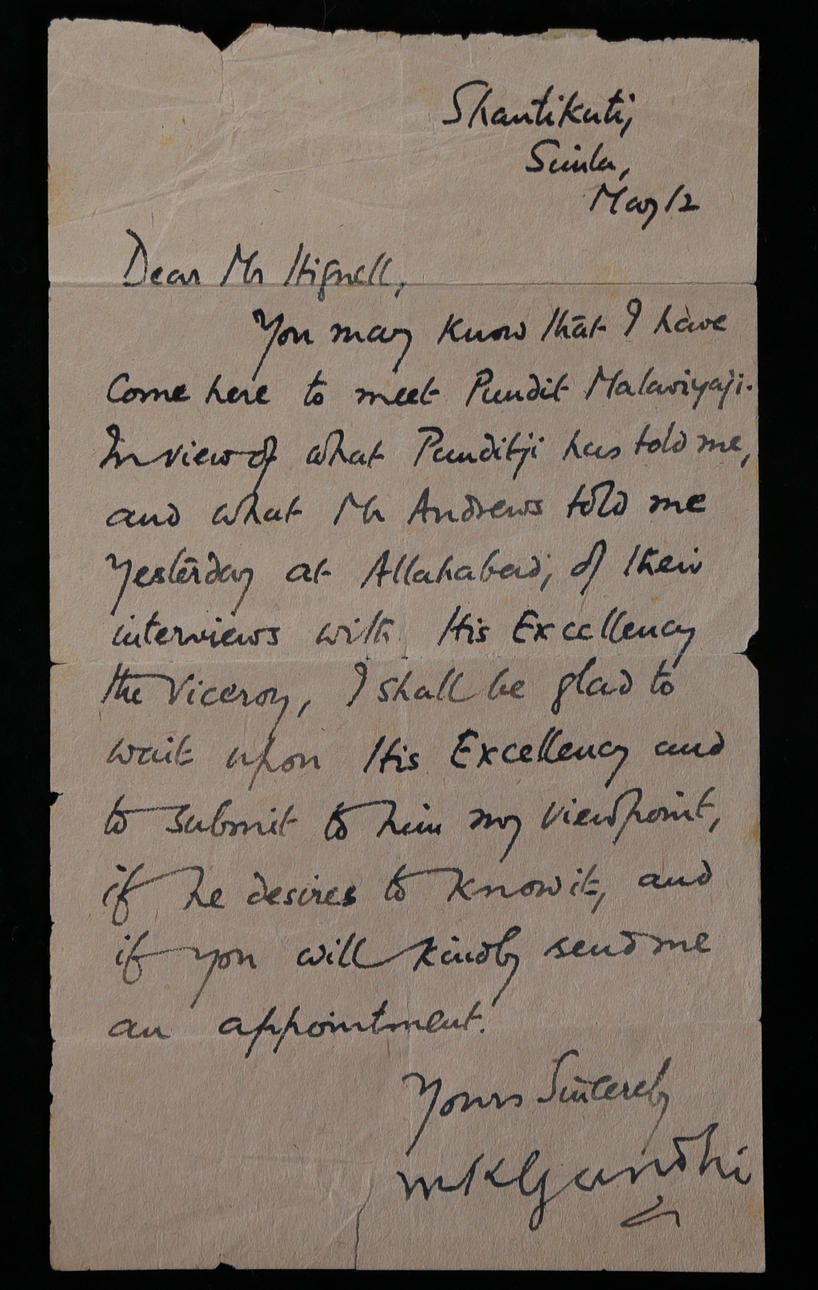 Shantikuti,
Simla,
May 12
Dear Mr Hignell,
You may know that I have
come here to meet Pundit Malaviyaji.
In view of what Punditji has told me,
and what Mr Andrews told me
yesterday at Allahabad, of their
interviews with His Excellency
the Viceroy, I shall be glad to
wait upon His Excellency and
to submit to him my viewpoint,
if he desires to know it, and
if you will kindly send me
an appointment.
Yours Sincerely
MKGandhi